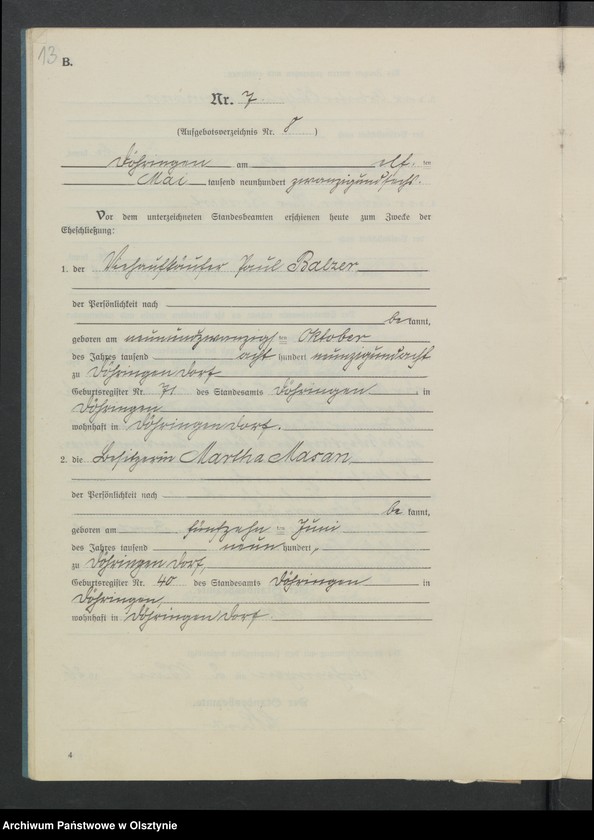 13
B.
Nr. 7.
(Aufgebotsverzeichnis Nr. 8 )
Döhringen am elf ten
Mai tausend neunhundert zwanzigundsechs.
Vor dem unterzeichneten Standesbeamten erschienen heute zum Zwecke der
Eheschließung:
1. der Viehaufkäufer Paul Balzer
der Persönlichkeit nach
be kannt,
geboren am neunundzwanzigsten Oktober
des Jahres tausend acht hundert nunzigundacht
zu Döhringen Dorf
Geburtsregister Nr. 71 des Standesamts Döhringen in
Döhringen
wohnhaft in Döhringen Dorf.
2. die Besitzerin Martha Masan
der Persönlichkeit nach
be kannt,
geboren am fünfzehn ten Juni
des Jahres tausend neun hundert,
zu Döhringen Dorf,
Geburtsregister Nr. 40 des Standesamts Döhringen in
Döhringen,
wohnhaft in Döhringen Dorf.
4
Archiwum Państwowe w Olsztynie